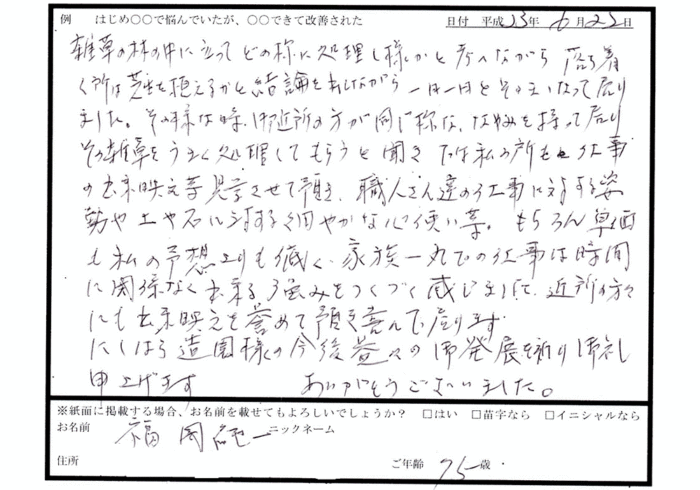 例　はじめ〇〇で悩んでいたが、〇〇できて改善された　日付 平成23年 6月22日
雑草の林の中に立って どの様に処理し様かと考へながら 落ち着
く所は芝生を植えるかと結論を出しながら 一日一日とそのまゝになって居り
ました。その様な時、御近所の方が同じ様な、なやみを持って居り
その雑草をうまく処理してもらうと聞き では私の所もと仕事
の出来映え等見学させて頂き、職人さん達の仕事に対する姿
勢や土や石に対する細やかな心使い等。もちろん単価
も私の予想よりも低く、家族一丸での仕事は時間
に関係なく出来る強みをつくづく感じまして、近所の方々
にも出来映えを誉めて頂き喜んで居ります
にしはら造園様の今後益々の御発展を祈り御礼
申上げます　ありがとうございました。
※紙面に掲載する場合、お名前を載せてもよろしいでしょうか？　□はい　□苗字なら　□イニシャルなら
お名前　福岡　一　ニックネーム
住所　ご年齢 75 歳